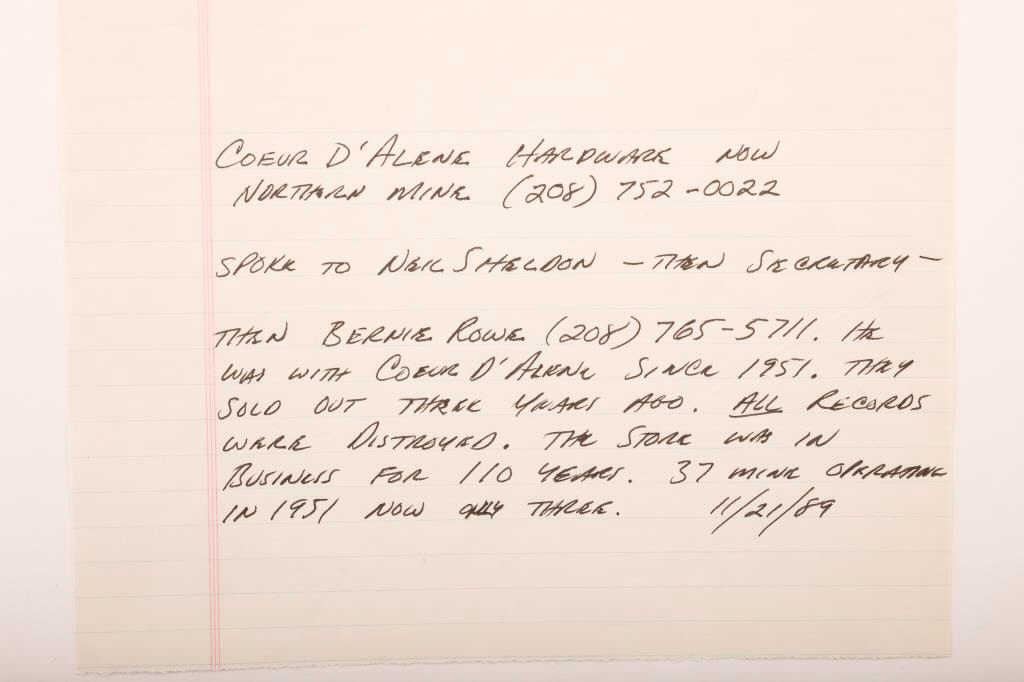 COEUR D'ALENE HARDWARE NOW
NORTHERN MINE (208) 752-0022
SPOKE TO NEIL SHELDON - THEN SECRETARY -
THEN BERNIE ROWE (208) 765-5711. HE
WAS WITH COEUR D'ALENE SINCE 1951. THEY
SOLD OUT THREE YEARS AGO. ALL RECORDS
WERE DISTROYED. THE STORE WAS IN
BUSINESS FOR 110 YEARS. 37 MINE OPERATING
IN 1951 NOW ONLY THREE. 11/21/89